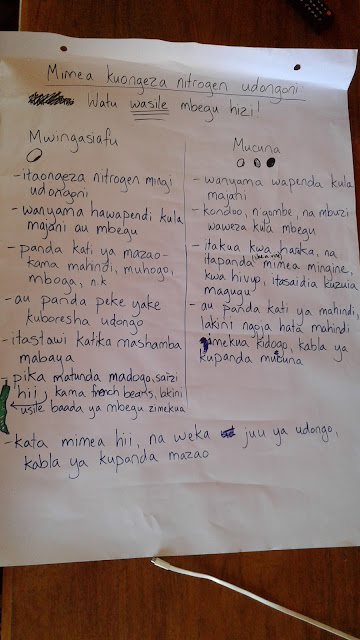 Mimea kuongeza nitrogen udongoni
Watu wasile mbegu hizi!
Mwingasiafu
-itaongeza nitrogen mingi
udongoni
-wanyama hawapendi kula
majani au mbegu
-panda kati ya mazao-
kama mahindi, muhogo,
mboga, n.k
-au panda peke yake
kuboresha udongo
-itastawi katika mashamba
mabaya
-pika matunda madogo, saizi
hii, kama french beans, lakini
usile baada ya mbegu zimekua
-kata mimea hii, na weka juu ya udongo,
kabla ya kupanda mazao
Mucuna
-wanyama wapenda kula
majani
-kondoo, n'gombe, na mbuzi
waweza kula mbegu
-itakua kwa haraka, na
itapanda mimea mingine,
kwa hivyo, itasaidia kuzuia
magugu
-au panda kati ya mahindi,
lakini ngoja hata mahindi
imekua kidogo, kabla ya
kupanda mucuna